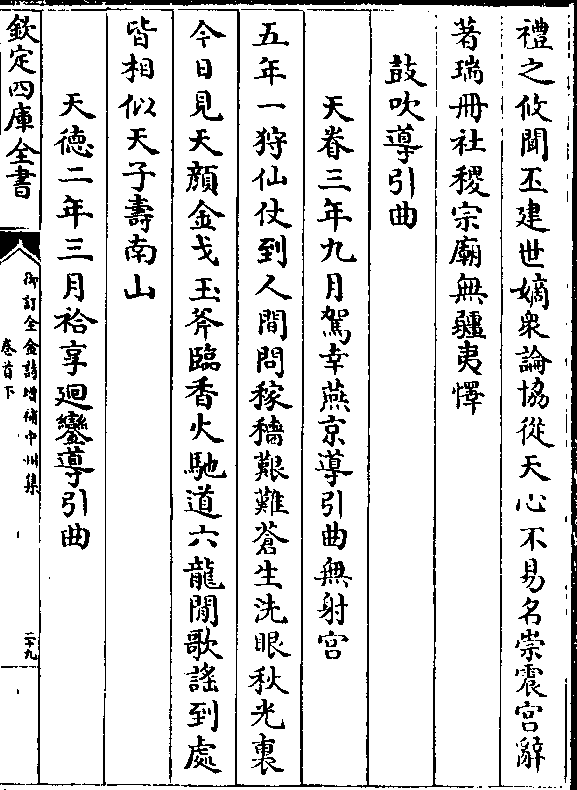 禮之攸聞丕建世嫡衆論協從天心不易名崇震宮辭
著瑞冊社稷宗廟無疆夷懌
鼓吹導引曲
天眷三年九月駕幸燕京導引曲無射宮
五年一狩仙仗到人間問稼穡艱難蒼生洗眼秋光裏
今日見天顏金戈玉斧臨香火馳道六龍閒歌謠到處
皆相似天子壽南山
天德二年三月祫享迴鑾導引曲
欽定四庫全書
御訂全金詩增補中州集
卷首下
二十九